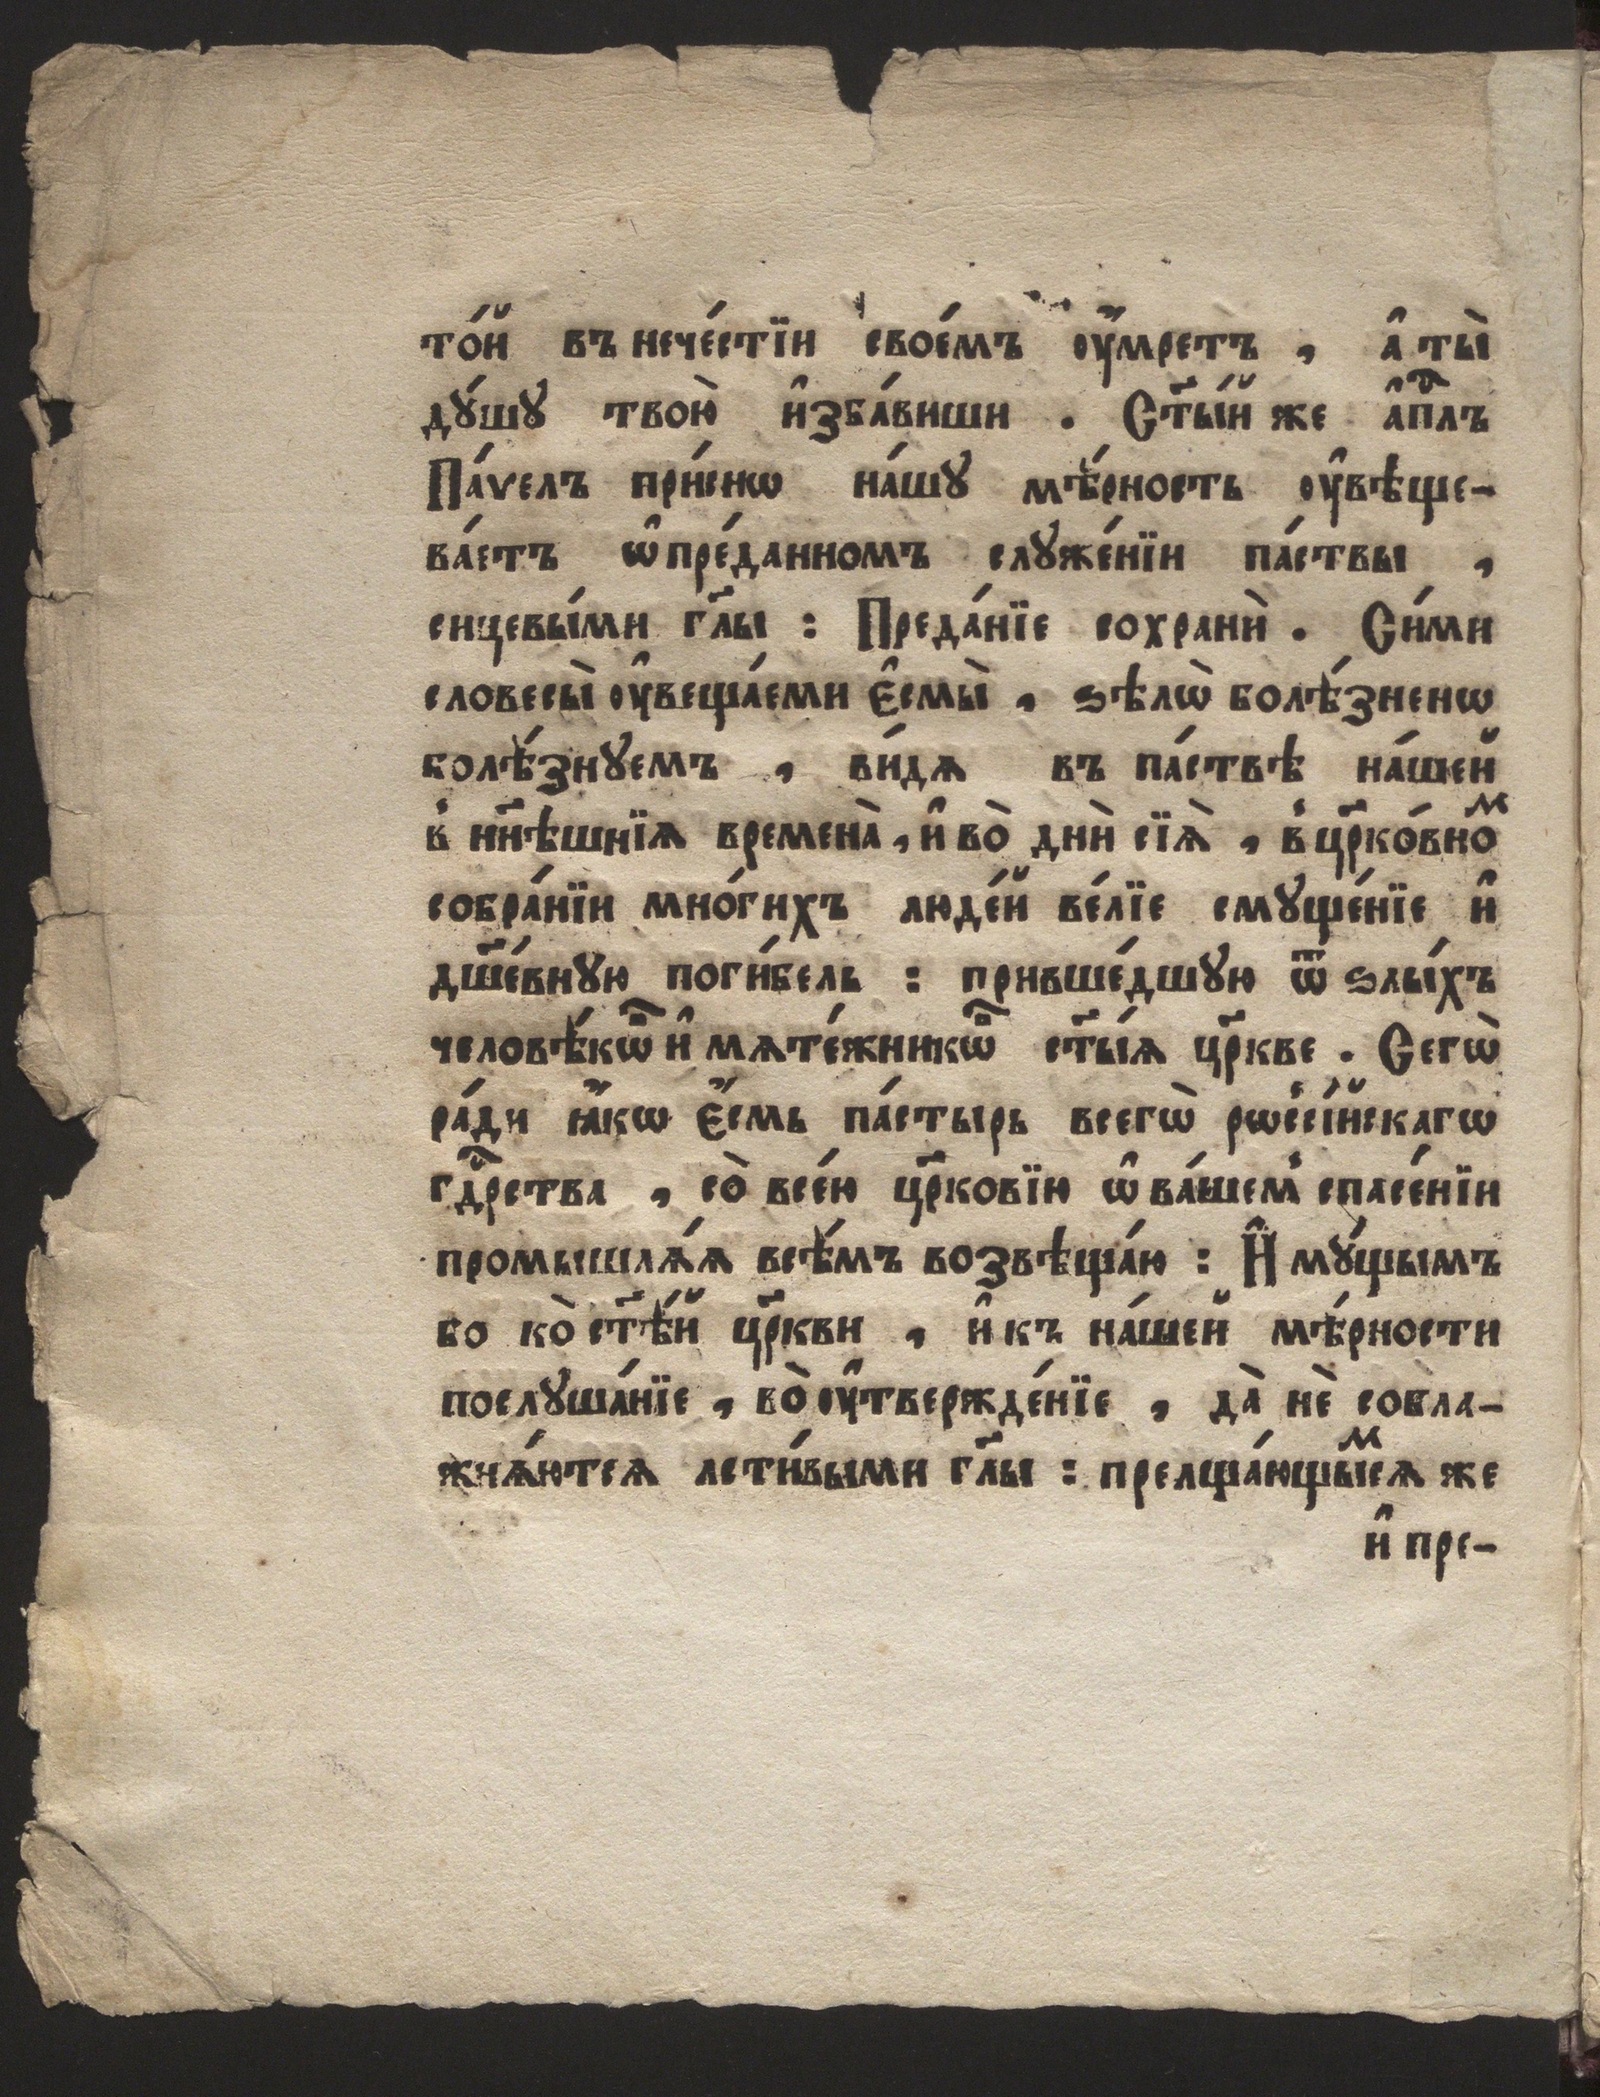 то́й въ нече́стїи свое́мъ ᲂу҆́мретъ , а҆ ты̀
дꙋ́шꙋ твою̀ и҆зба́виши . Ст҃ы́й же а҆пⷭ҇лъ
Па́ѵелъ при́снѡ на́шꙋ мѣ́рность ᲂу҆вѣще-
ва́етъ ѡ҆ пре́данномъ слꙋже́нїи па́ствы ,
сицевы́ми гл҃ы : Преда́нїе сохранѝ . Си́ми
словесы̀ ᲂу҆веща́еми є҆смы̀ , ѕѣлѡ̀ болѣ́зненѡ
болѣ́знꙋемъ , ви́дѧ въ па́ствѣ на́шей
в̾ нн҃ѣшнїѧ времена̀ , и҆ во̀ днѝ сїѧ̀ , в̾ цр҃ко́вноⷨ
собра́нїи мно́гихъ люде́й ве́лїе смꙋще́нїе и҆
дш҃е́внꙋю поги́бель : прившедшꙋю ѿ ѕлы́хъ
человѣ́кѡⷡ҇ и҆ мѧте́жникѡⷡ҇ ст҃ы́ѧ цр҃кве . Сегѡ̀
ра́ди ꙗ҆́кѡ є҆́смь па́стырь всегѡ̀ рѡссі́йскагѡ
гдⷭ҇рства , со̀ все́ю цр҃ковїю ѡ҆ ва́шем̾ спасе́нїи
промышлѧ́ѧ всѣ́мъ возвѣща́ю : И҆мꙋ́щымъ
бо ко̀ ст҃ѣ́й цр҃кви , и҆ къ на́шей мѣ́рности
послꙋша́нїе , во̀ ᲂу҆твержде́нїе , да̀ нѐ собла-
жнѧ́ютсѧ лсти́выми гл҃ы : прелща́ющыⷨсѧ же
и҆ пре-